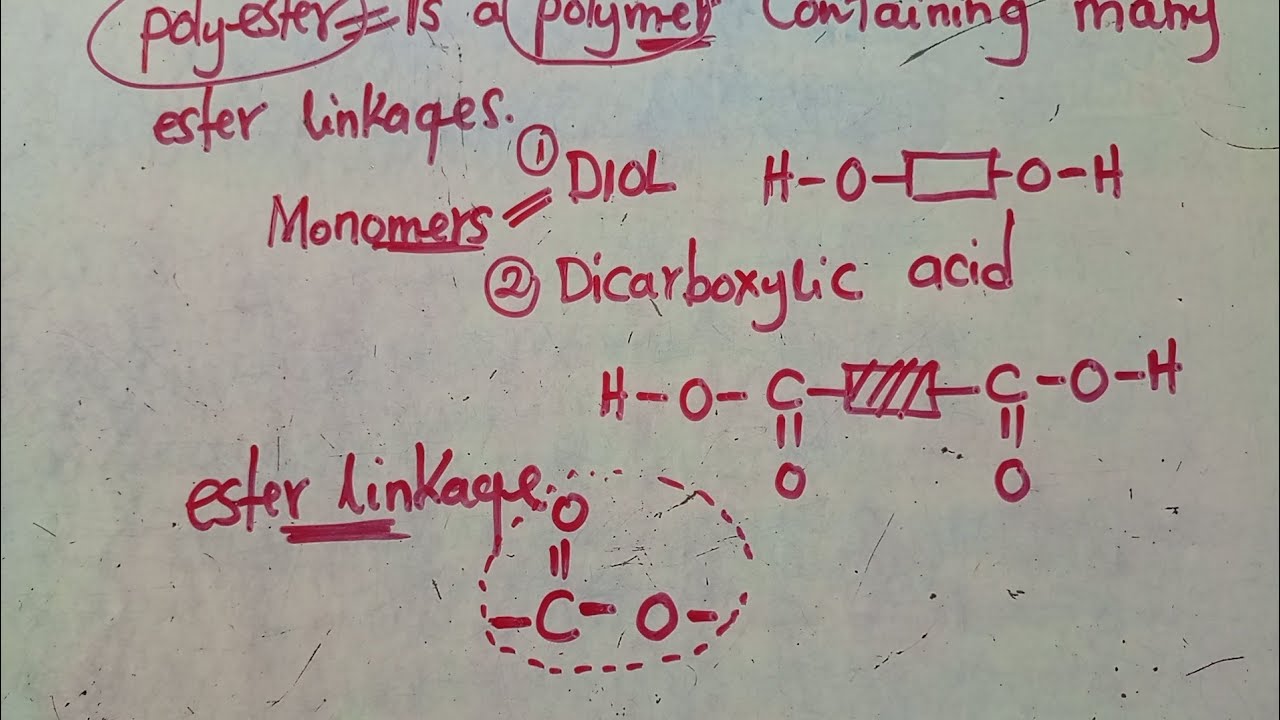 poly-ester = Is a polymer containing many
ester linkages.
Monomers
① DIOL H-O-▭-O-H
② Dicarboxylic acid
H-O-C-▨-C-O-H
|| ||
O O
ester linkage.
O
||
-C-O-